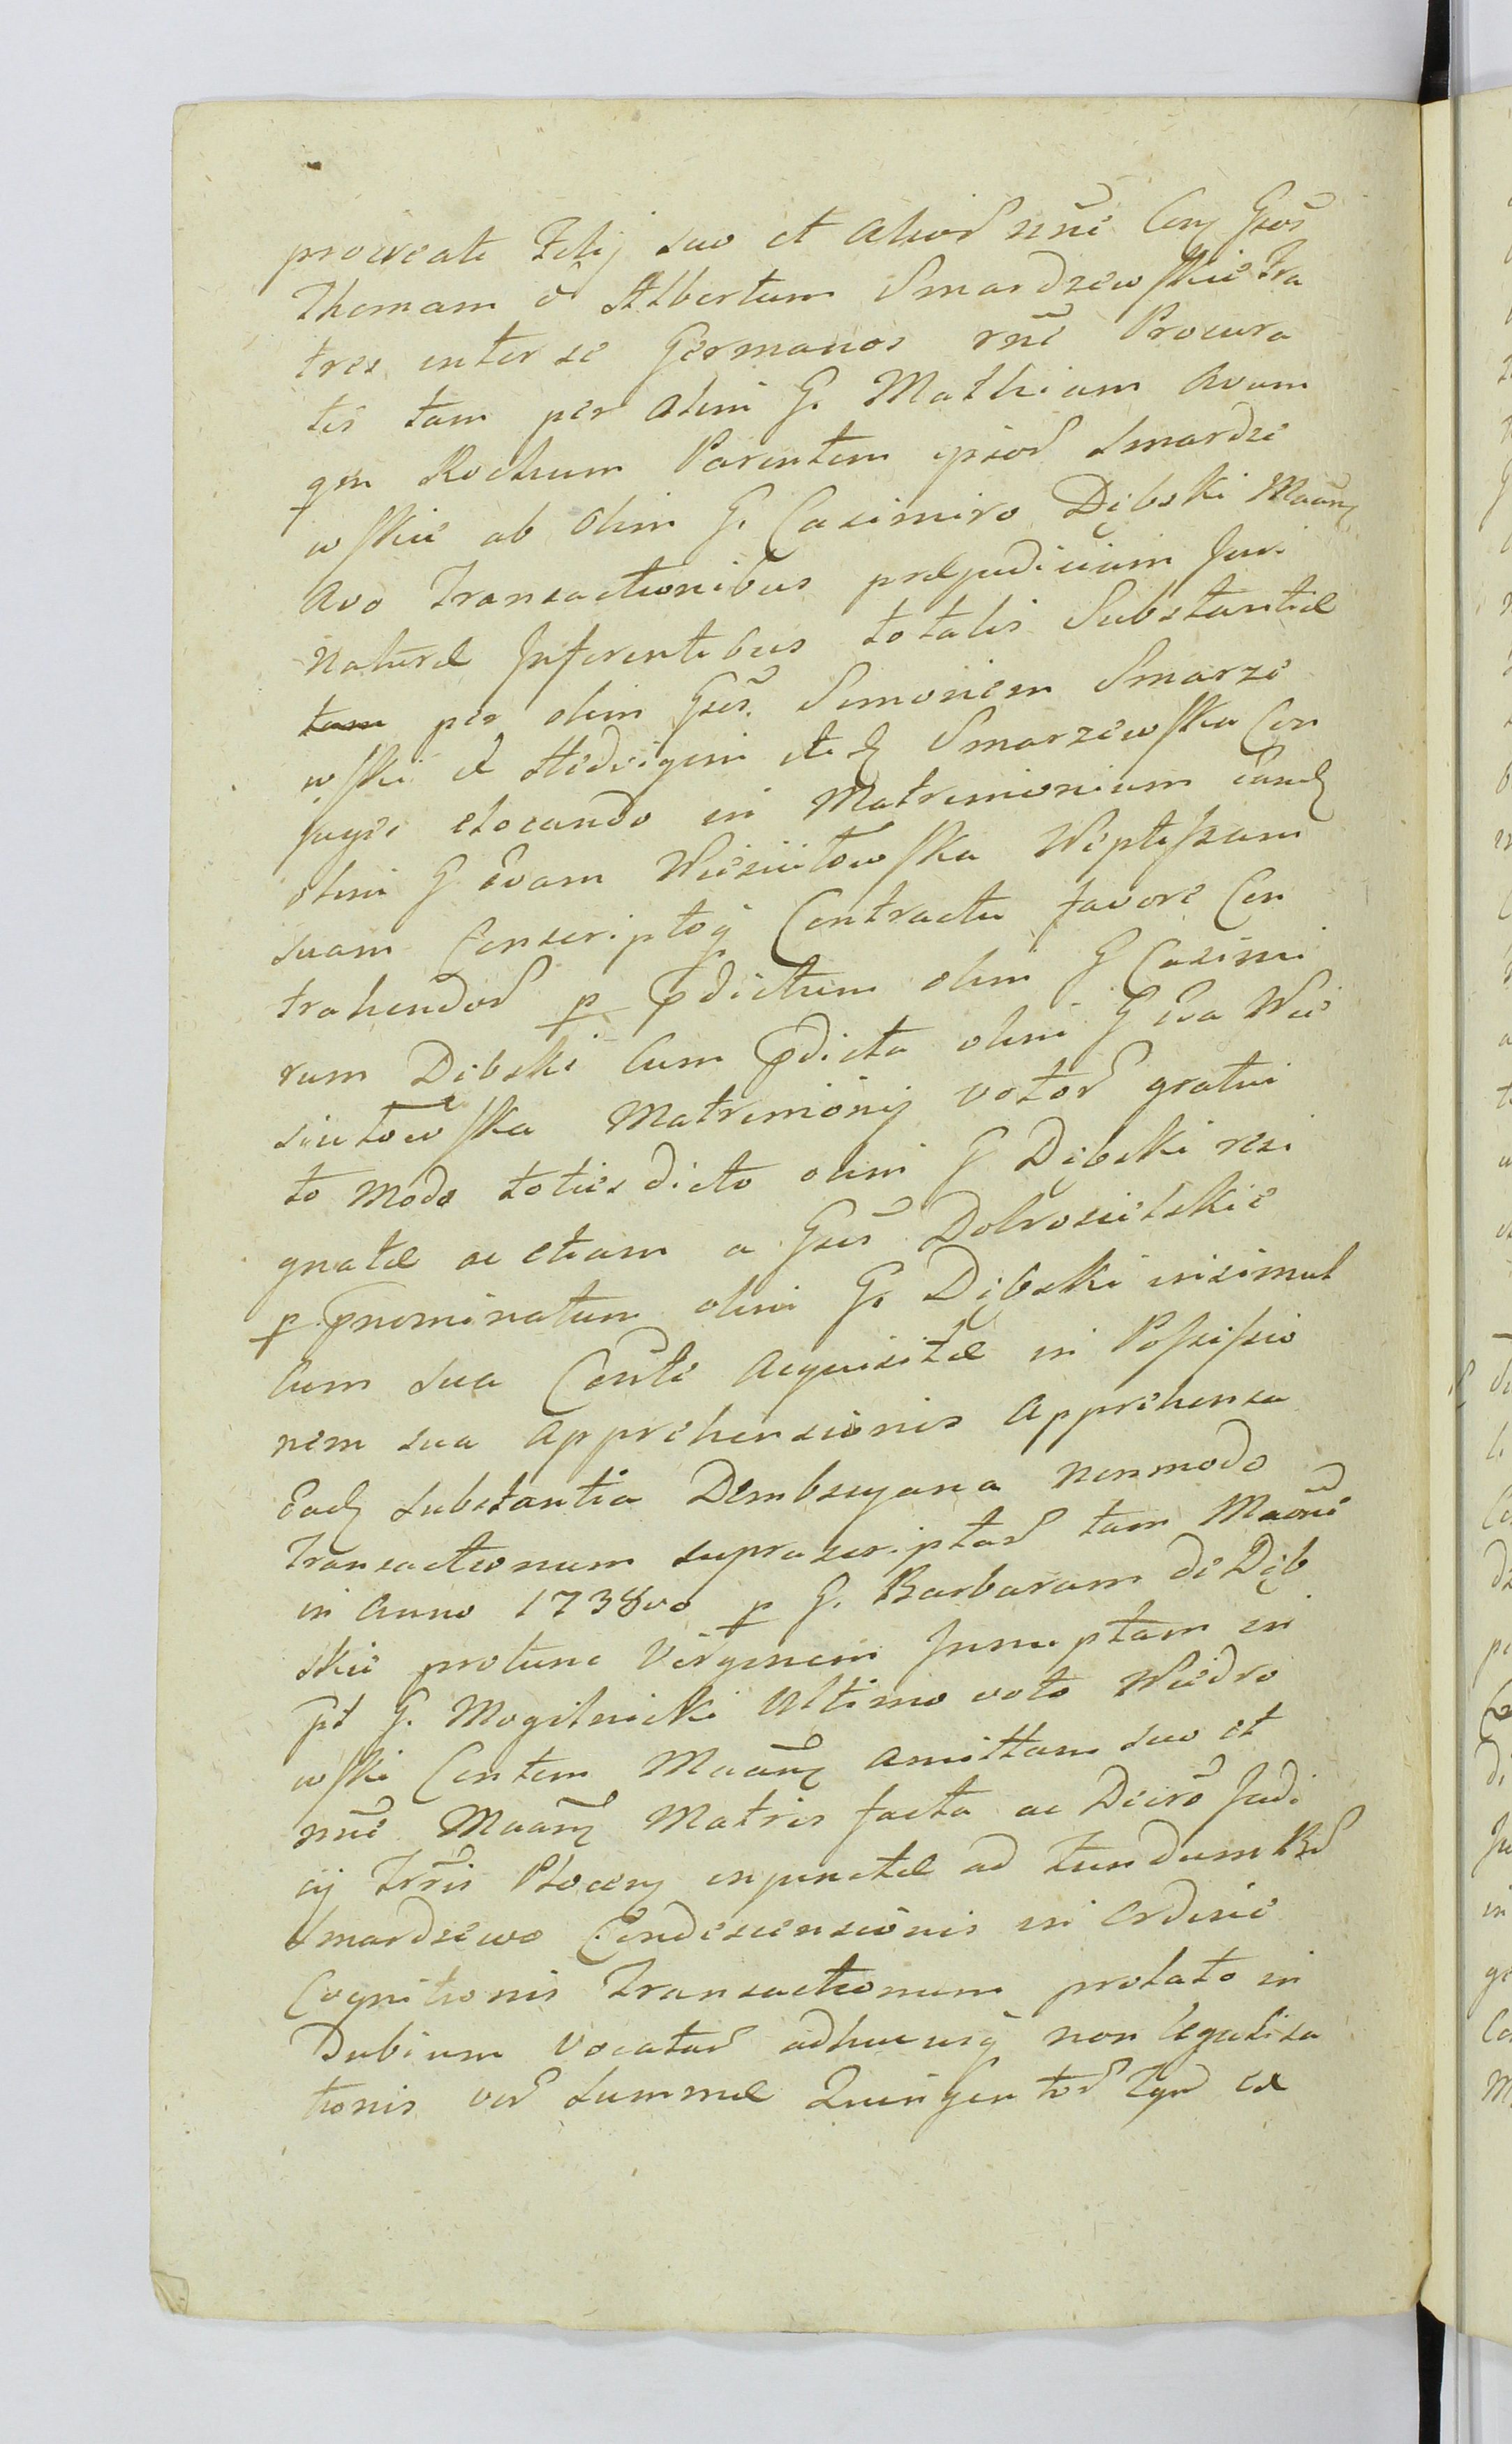 procreati Filij suo et alior nñe Conj Gsos
Thomam & Albertum Smardzewskie Fra
tres inter se Germanos rñe Procura
tis tam per olim G. Mathiam Avum
qm Rochum Parentem ipsor Smardze
wskie ab olim G. Casimiro Dębski Maano
Avo Transactionibus præjudicium Juri
naturæ Inferentibus totalis Substantiæ
per olim Gses. Simonem Smarze
wski et Hedvigem Smarzewska Con
juges elocando in Matrimonium eand
olim G Evam Wiesiułowska Neptissam
suam Conscriptoq Contractu favore Con
trahendor p pdictum olim G Casimi
rum Dębski Cum pdicta olim G Eva Wie
siułowska Matrimonij votor gratui
to Modo toties dicto olim G Dębski resi
gnatæ ac etiam a Gsis Dobrosielskie
p pnominatum olim G. Dębski insimul
Cum sua Conte Acquisitæ in Possessio
nem sua Apprehensionis Apprehensa
Ead Substantia Dembscyana nonmodo
Transactionum suprascriptar tam Maone
in Anno 1738vo p G. Barbaram de Dęb
skie protunc Virginem Innuptam in
pt G. Mogilnicki Ultimo voto Wiedro
wski Contem Maang Amittam suo et
nñe Maang Matris facta ac Decro Judi
cij Trris Plocen injunctæ ad Fundum Br
Smardzewo Condescensionis in Ordine
Cognitionis Transactionum prolato in
Dubium Vocatar adhucusq non legalisa
tionis ver Summæ Quingentor Tynf et